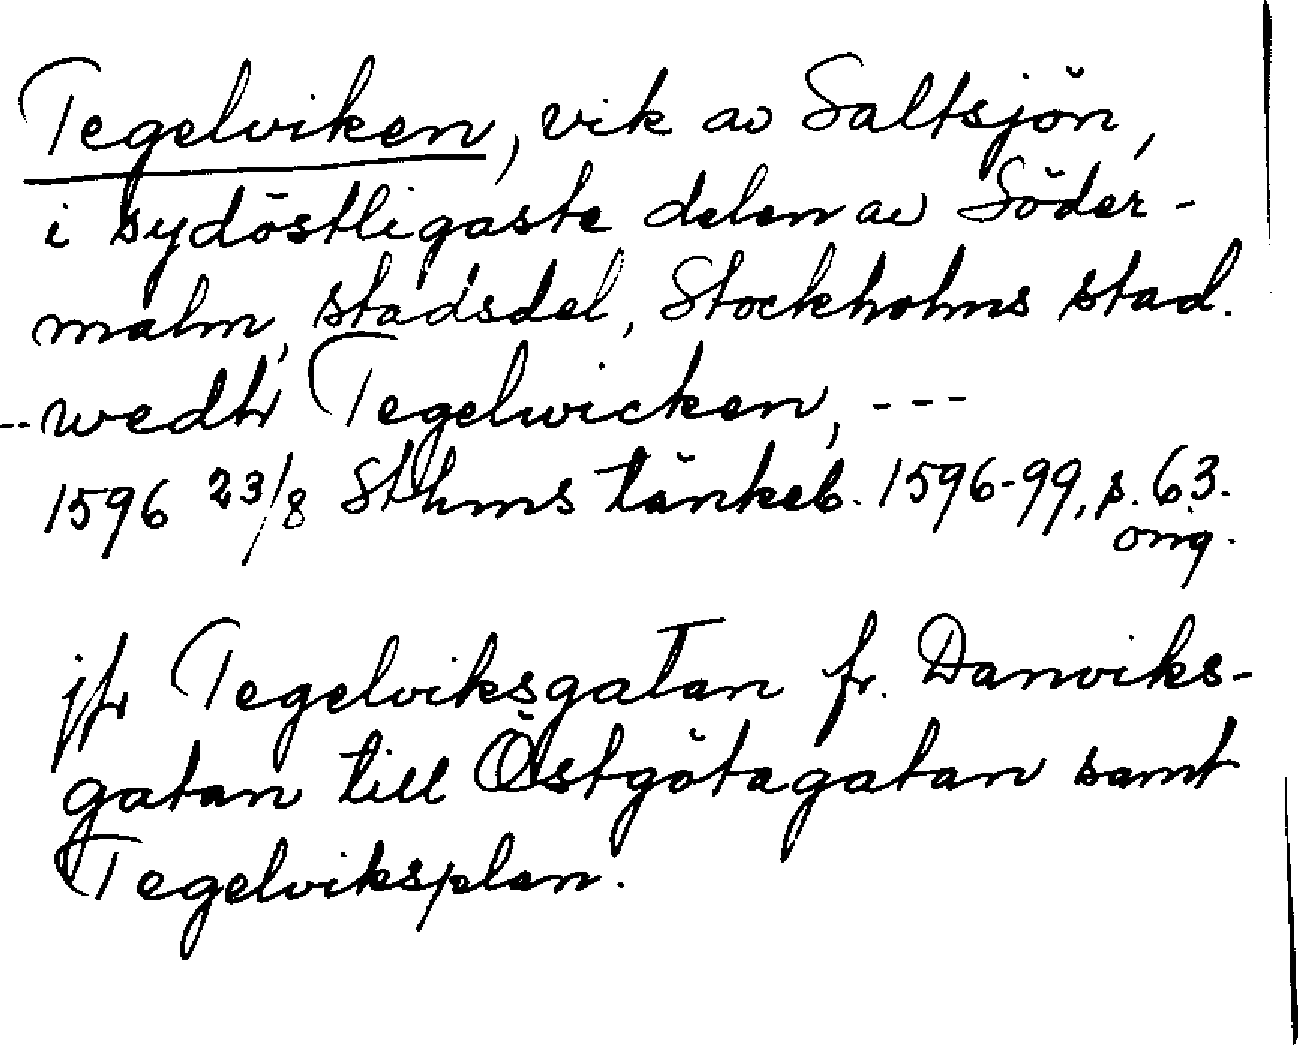 Tegelviken, vik av Saltsjön,
i sydöstligaste delen av Söder-
malm, stadsdel, Stockholms stad.
-- wedh Tegelwicken, ---
1596 23/8 Sthms tänkeb. 1596-99, s. 63.
orig.
jfr Tegelviksgatan fr. Danviks-
gatan till Östgötagatan samt
Tegelviksplan.